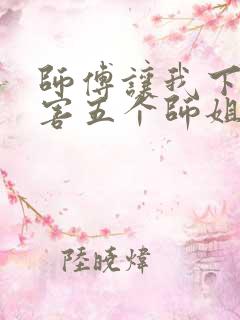 師傅讓我下
害五个師姐
陸曉煒